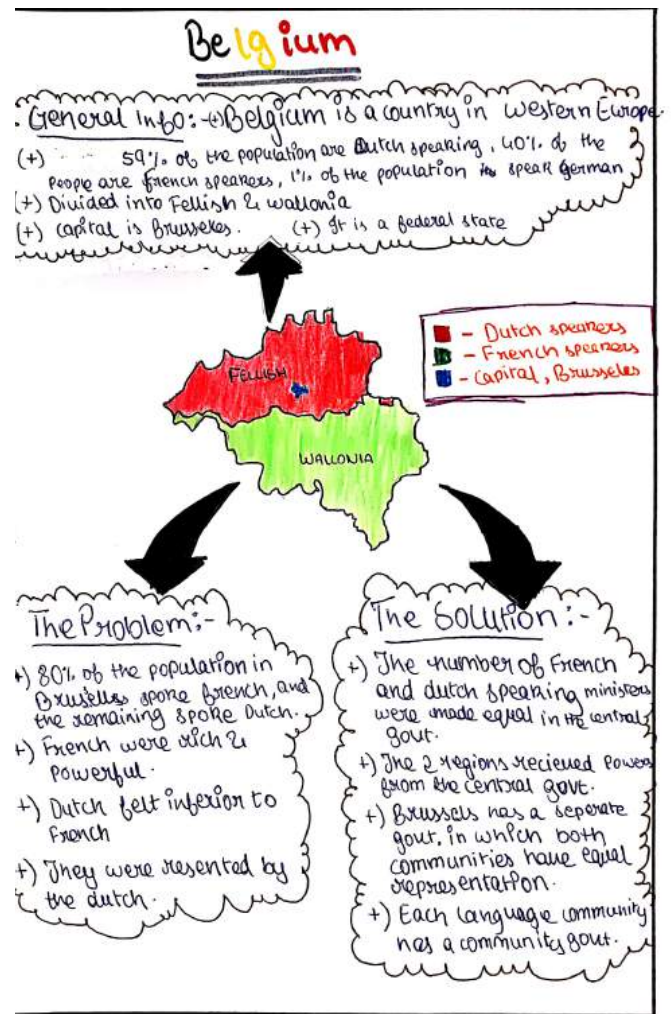 Belgium
General Info:- (+) Belgium is a country in Western Europe.
(+) 59% of the population are Dutch speaking, 40% of the
people are french speakers, 1% of the population speak German
(+) Divided into Fellish & wallonia
(+) Capital is Brusseles. (+) It is a federal state
- Dutch speakers
- French speakers
- Capital, Brusseles
FELLISH
WALLONIA
The Problem:-
+) 80% of the population in
Brussels spoke french, and
the remaining spoke Dutch.
+) French were rich &
powerful.
+) Dutch felt inferior to
French
+) They were resented by
the dutch.
The Solution:-
+) The number of French
and dutch speaking ministers
were made equal in the central
govt.
+) The 2 regions recieved powers
from the central govt.
+) Brussels has a seperate
govt. in which both
communities have equal
representation.
+) Each language community
has a community govt.